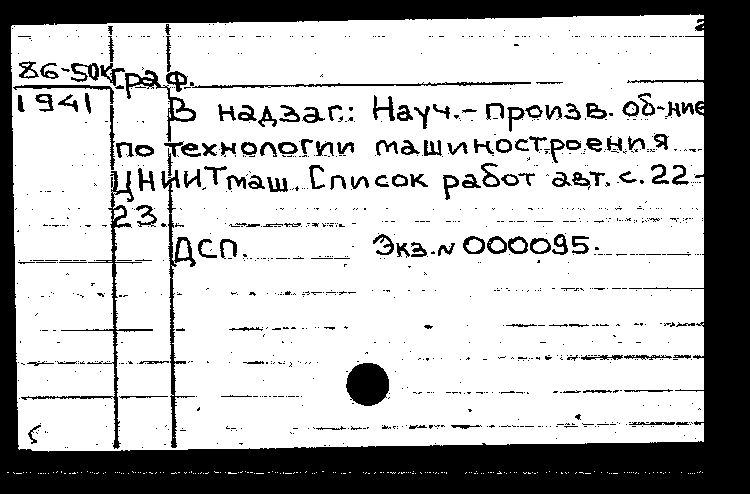 2
86-50к граф.
1941 В надзаг.: Науч.-произв. об-ние
по технологии машиностроения
ЦНИИТмаш. Список работ авт. с. 22-
23.
ДСП. Экз.N 000095.